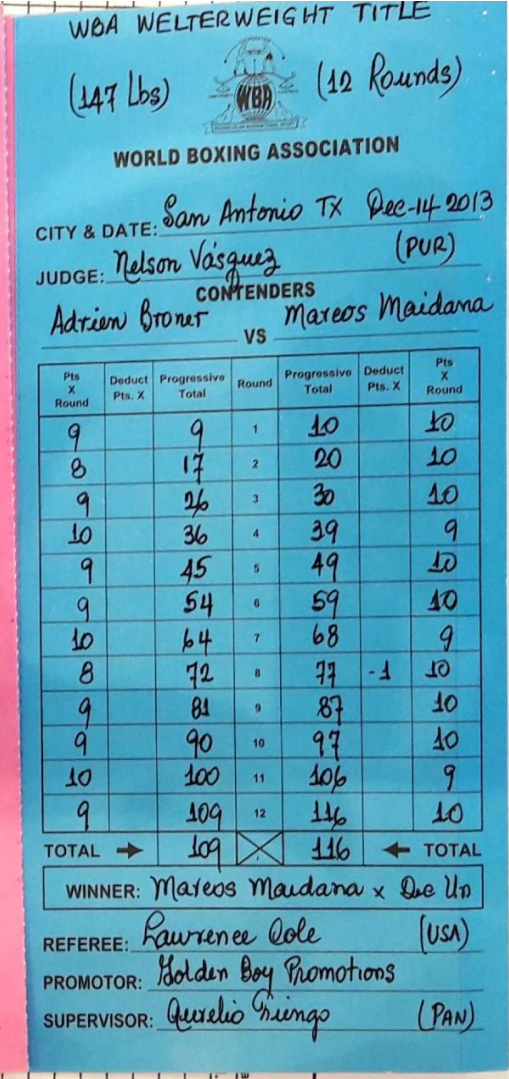 WBA WELTERWEIGHT TITLE
(147 Lbs) WBA (12 Rounds)
WORLD BOXING ASSOCIATION
CITY & DATE: San Antonio TX Dec-14-2013
JUDGE: Nelson Vásquez (PUR)
CONTENDERS
Adrien Broner VS Marcos Maidana
Pts X Round Deduct Pts. X Progressive Total Round Progressive Total Deduct Pts. X Pts X Round
9 9 1 10 10
8 17 2 20 10
9 26 3 30 10
10 36 4 39 9
9 45 5 49 10
9 54 6 59 10
10 64 7 68 9
8 72 8 77 -1 10
9 81 9 87 10
9 90 10 97 10
10 100 11 106 9
9 109 12 116 10
TOTAL → 109 116 ← TOTAL
WINNER: Marcos Maidana x Dec Un
REFEREE: Lawrence Cole (USA)
PROMOTOR: Golden Boy Promotions
SUPERVISOR: Aurelio (PAN)